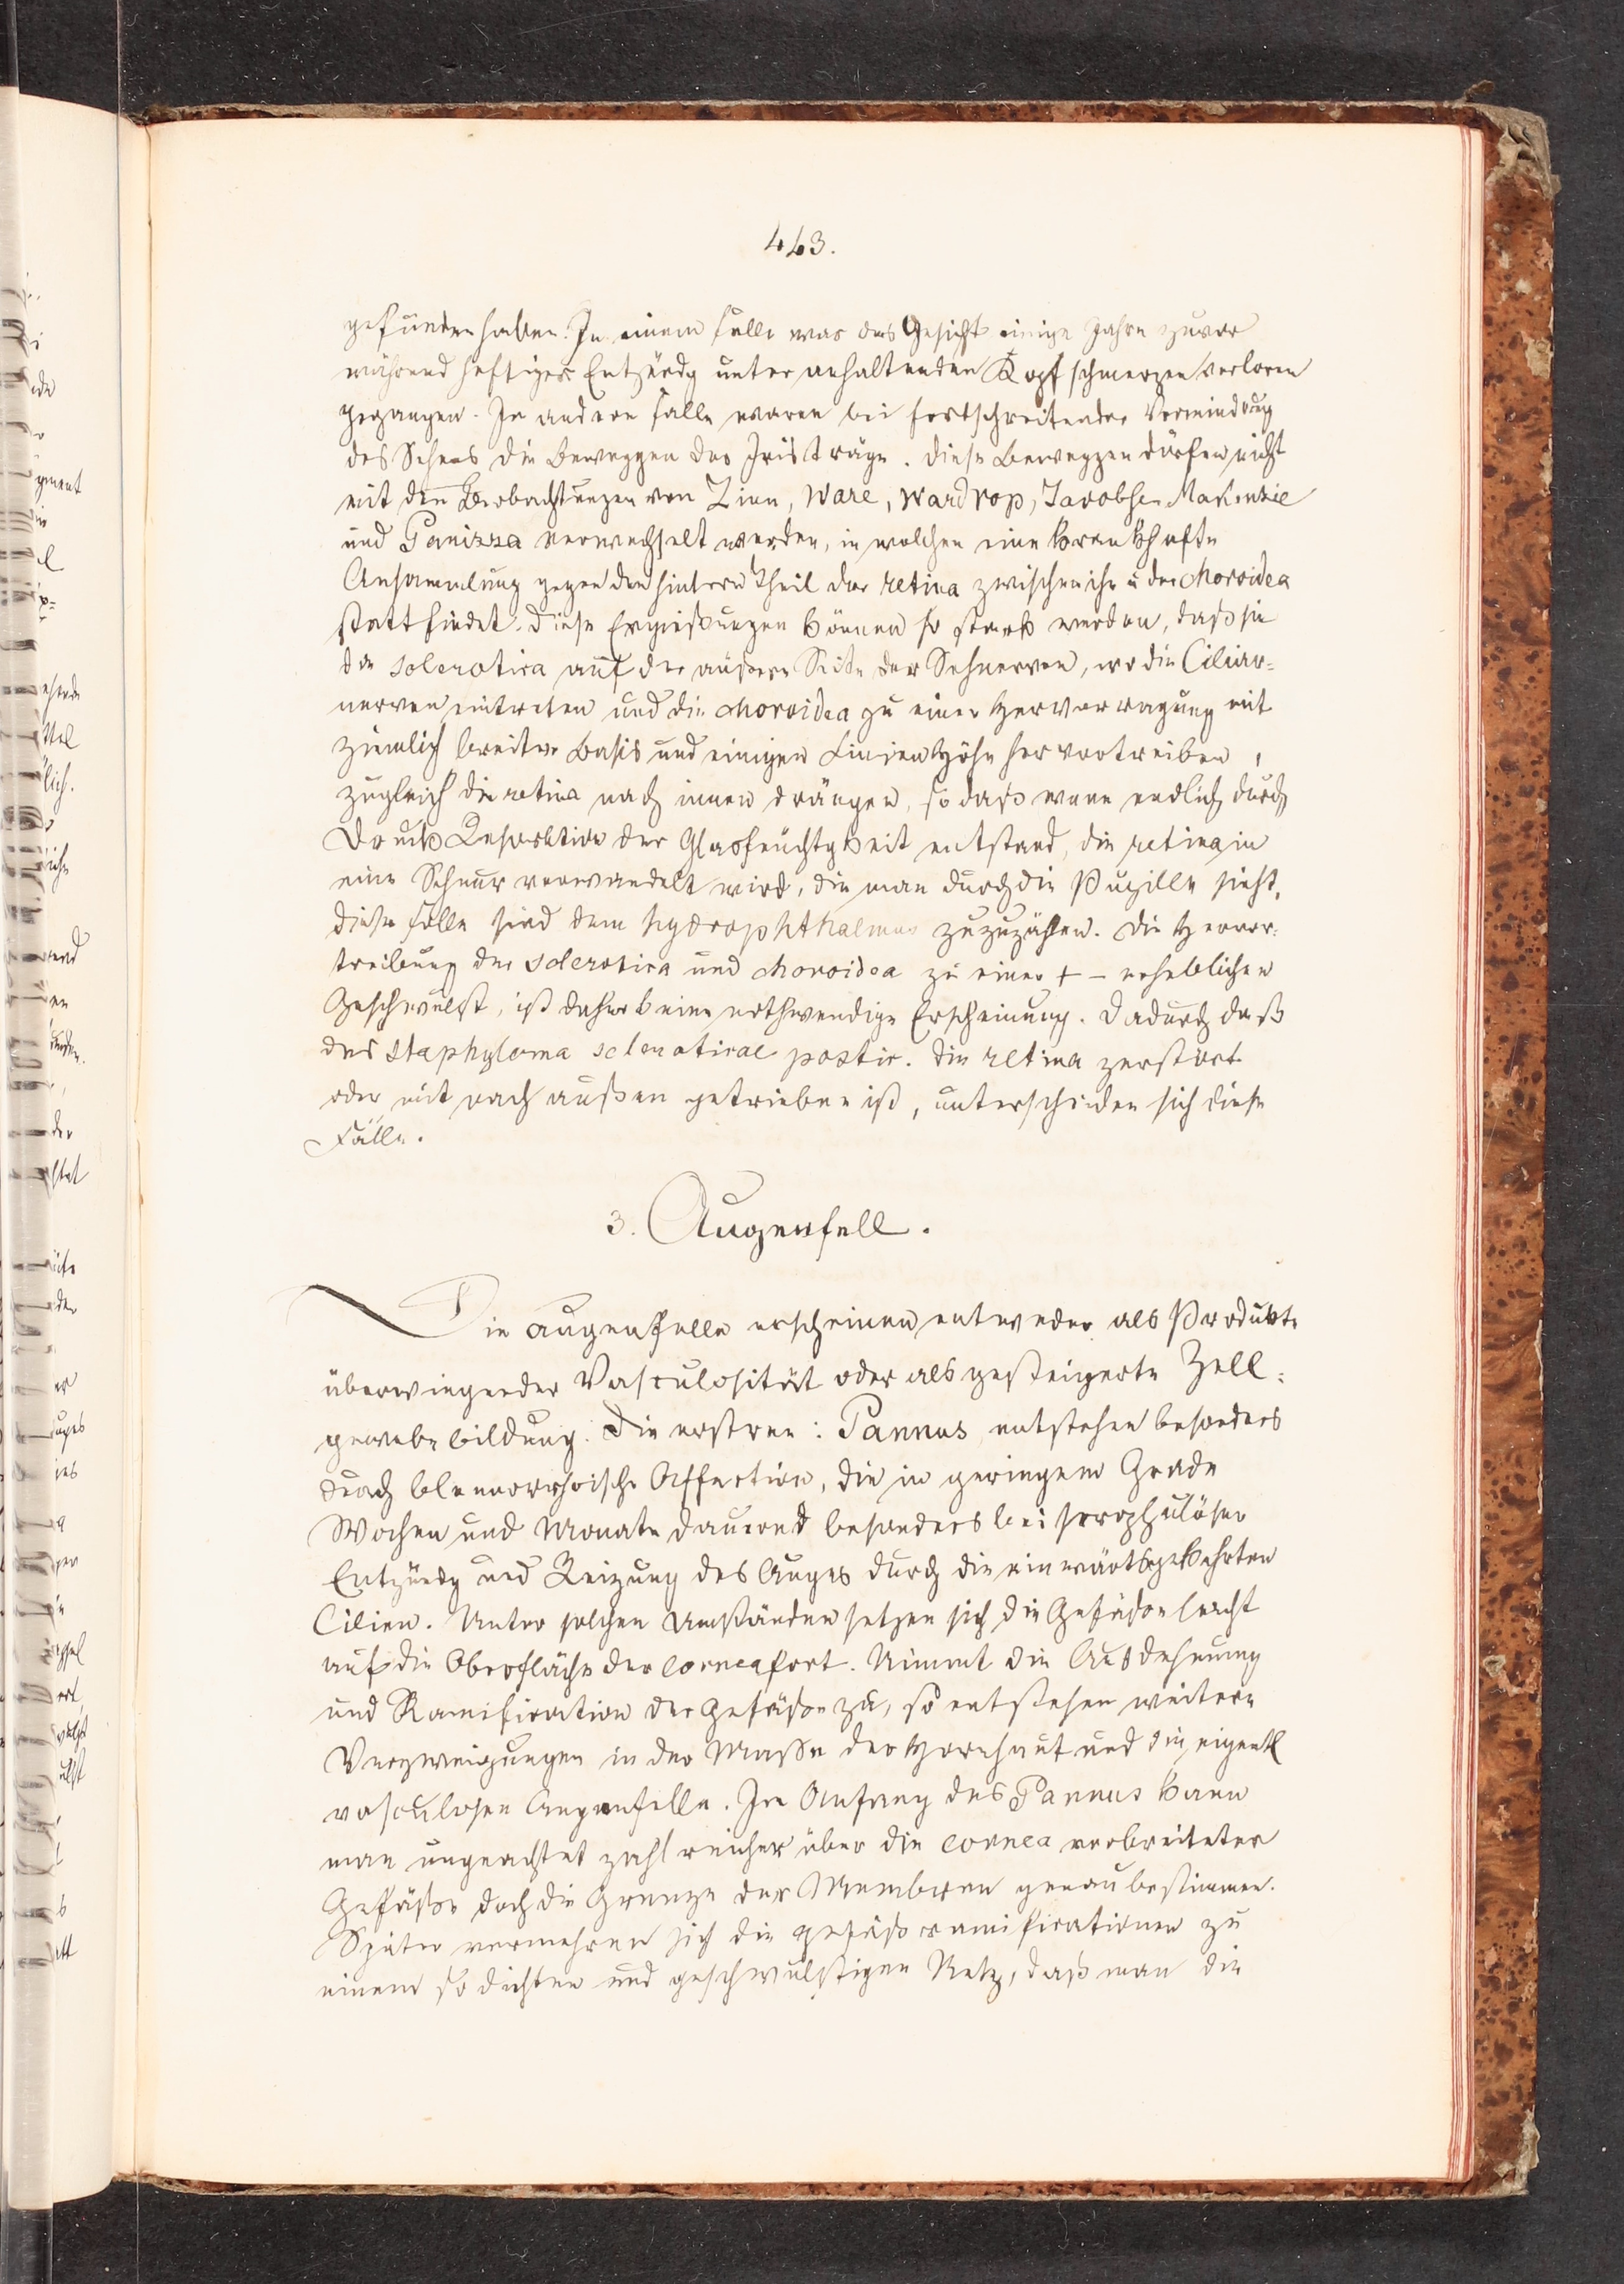 463.
gefunden haben. In einem Falle war das Gesicht einige Jahre zuvor
während heftiger Entzündg unter anhaltenden Kopfschmerzen verloren
gegangen. In andern Falle waren bei fortschreitender Verminderung
des Sehens die Beweggen der Iris träge. Diese Beweggen dürfen nicht
mit den Beobachtungen von Zinn, Ware, Wardrop, Jacobsen Makenzie
und Panizza verwechselt werden, in welchen eine krankhafte
Ansammlung gegen den hintern Theil der retina zwischen ihr u der choroidea
statt findet. Diese Ergießungen können so stark werden, daß sie
die sclerotica auf der äußern Seite der Sehnerven, wo die Ciliar-
nerven eintreten und die choroidea zu einer Hervorragung mit
ziemlich breiter Basis und einigen Linien Höhe hervortreiben,
zugleich die retina nach innen drängen, so daß wenn endlich durch
Druck Resorktion der Glasfeuchtgkeit entstand, die retina in
eine Schnur verwandelt wird, die man durch die Pupille sieht.
diese Fälle sind dem hydrophthalmus zuzuzählen. Die Hervor-
treibung der sclerotica und choroidea zu einer + – erheblichen
Geschwulst, ist daher keine nothwendige Erscheinung. Dadurch daß
des staphyloma scleroticae postic. die retina zerstört
oder mit nach außen getrieben ist, unterscheiden sich diese
Fälle.
3. Augenfell.
Die Augenfelle erscheinen entweder als Produkte
überwiegender Vasculosität oder als gesteigerte Zell-
gewebebildung. Die erstren: Pannus entstehen besonders
durch blennorrhoische Affection, die in geringem Grade
Wochen und Monate dauernd besonders bei scrophulöser
Entzündg und Reizung des Auges durch die einwärtsgekehrten
Cilien. Unter solchen Umständen setzen sich die Gefäße leicht
auf die Oberfläche der cornea fort. Nimmt die Ausdehnung
und Ramification der Gefäße zu, so entstehen weitere
Verzweigungen in der Masse der Hornhaut und die eigentl
vasculosen Augenfelle. Im Anfang des Pannus kann
man ungeachtet zahlreicher über die cornea verbreiteter
Gefäße doch die Grenze der Membran genau bestimmen.
Später vermehren sich die Gefäßramificationen zu
einem so dichten und geschwulstigen Netz, daß man die